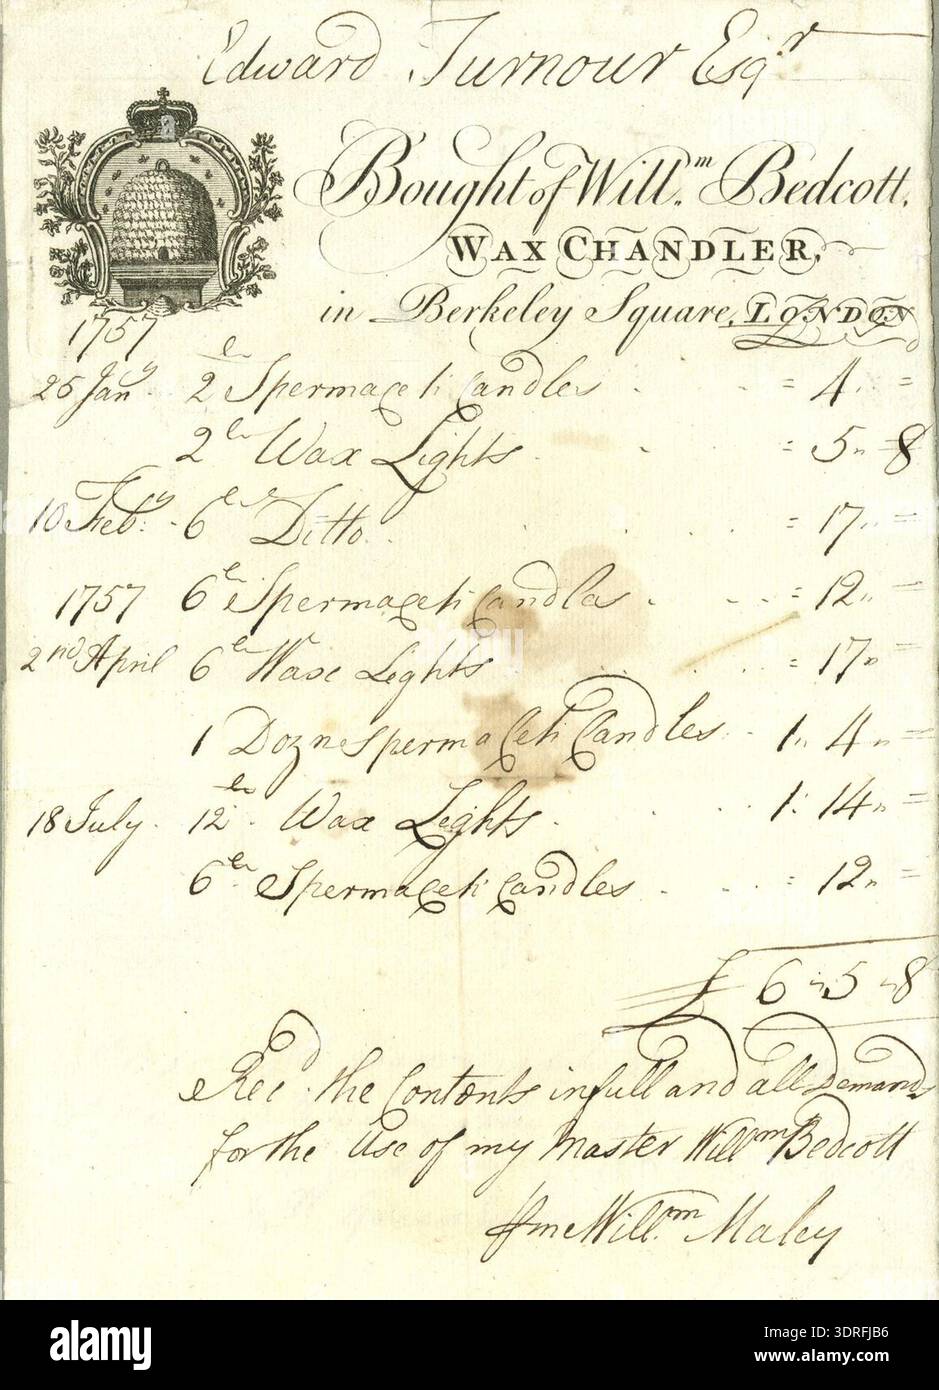 Edward Turnour Esqr
Bought of Will.m Bedcott,
WAX CHANDLER,
in Berkeley Square, LONDON
1757
25 Jany. 2 lb Spermaceti Candles . . . = 4 " =
2 lb Wax Lights . . = 5 " 8
10 Feby. 6 lb Ditto . . . = 17 " =
1757 6 lb Spermaceti Candles . . . = 12 " =
2nd April 6 lb Wax Lights . . . = 17 " =
1 Dozn Spermaceti Candles . 1 " 4 " =
18 July. 12 lb. Wax Lights . . . 1 : 14 " =
6 lb Spermaceti Candles . . . = 12 " =
£ 6 " 5 " 8
Recd. the Contents in full and all Demands
for the Use of my Master Willm Bedcott
Pr me Will.m Maley
alamy
Image ID: 3DRFJB6
www.alamy.com